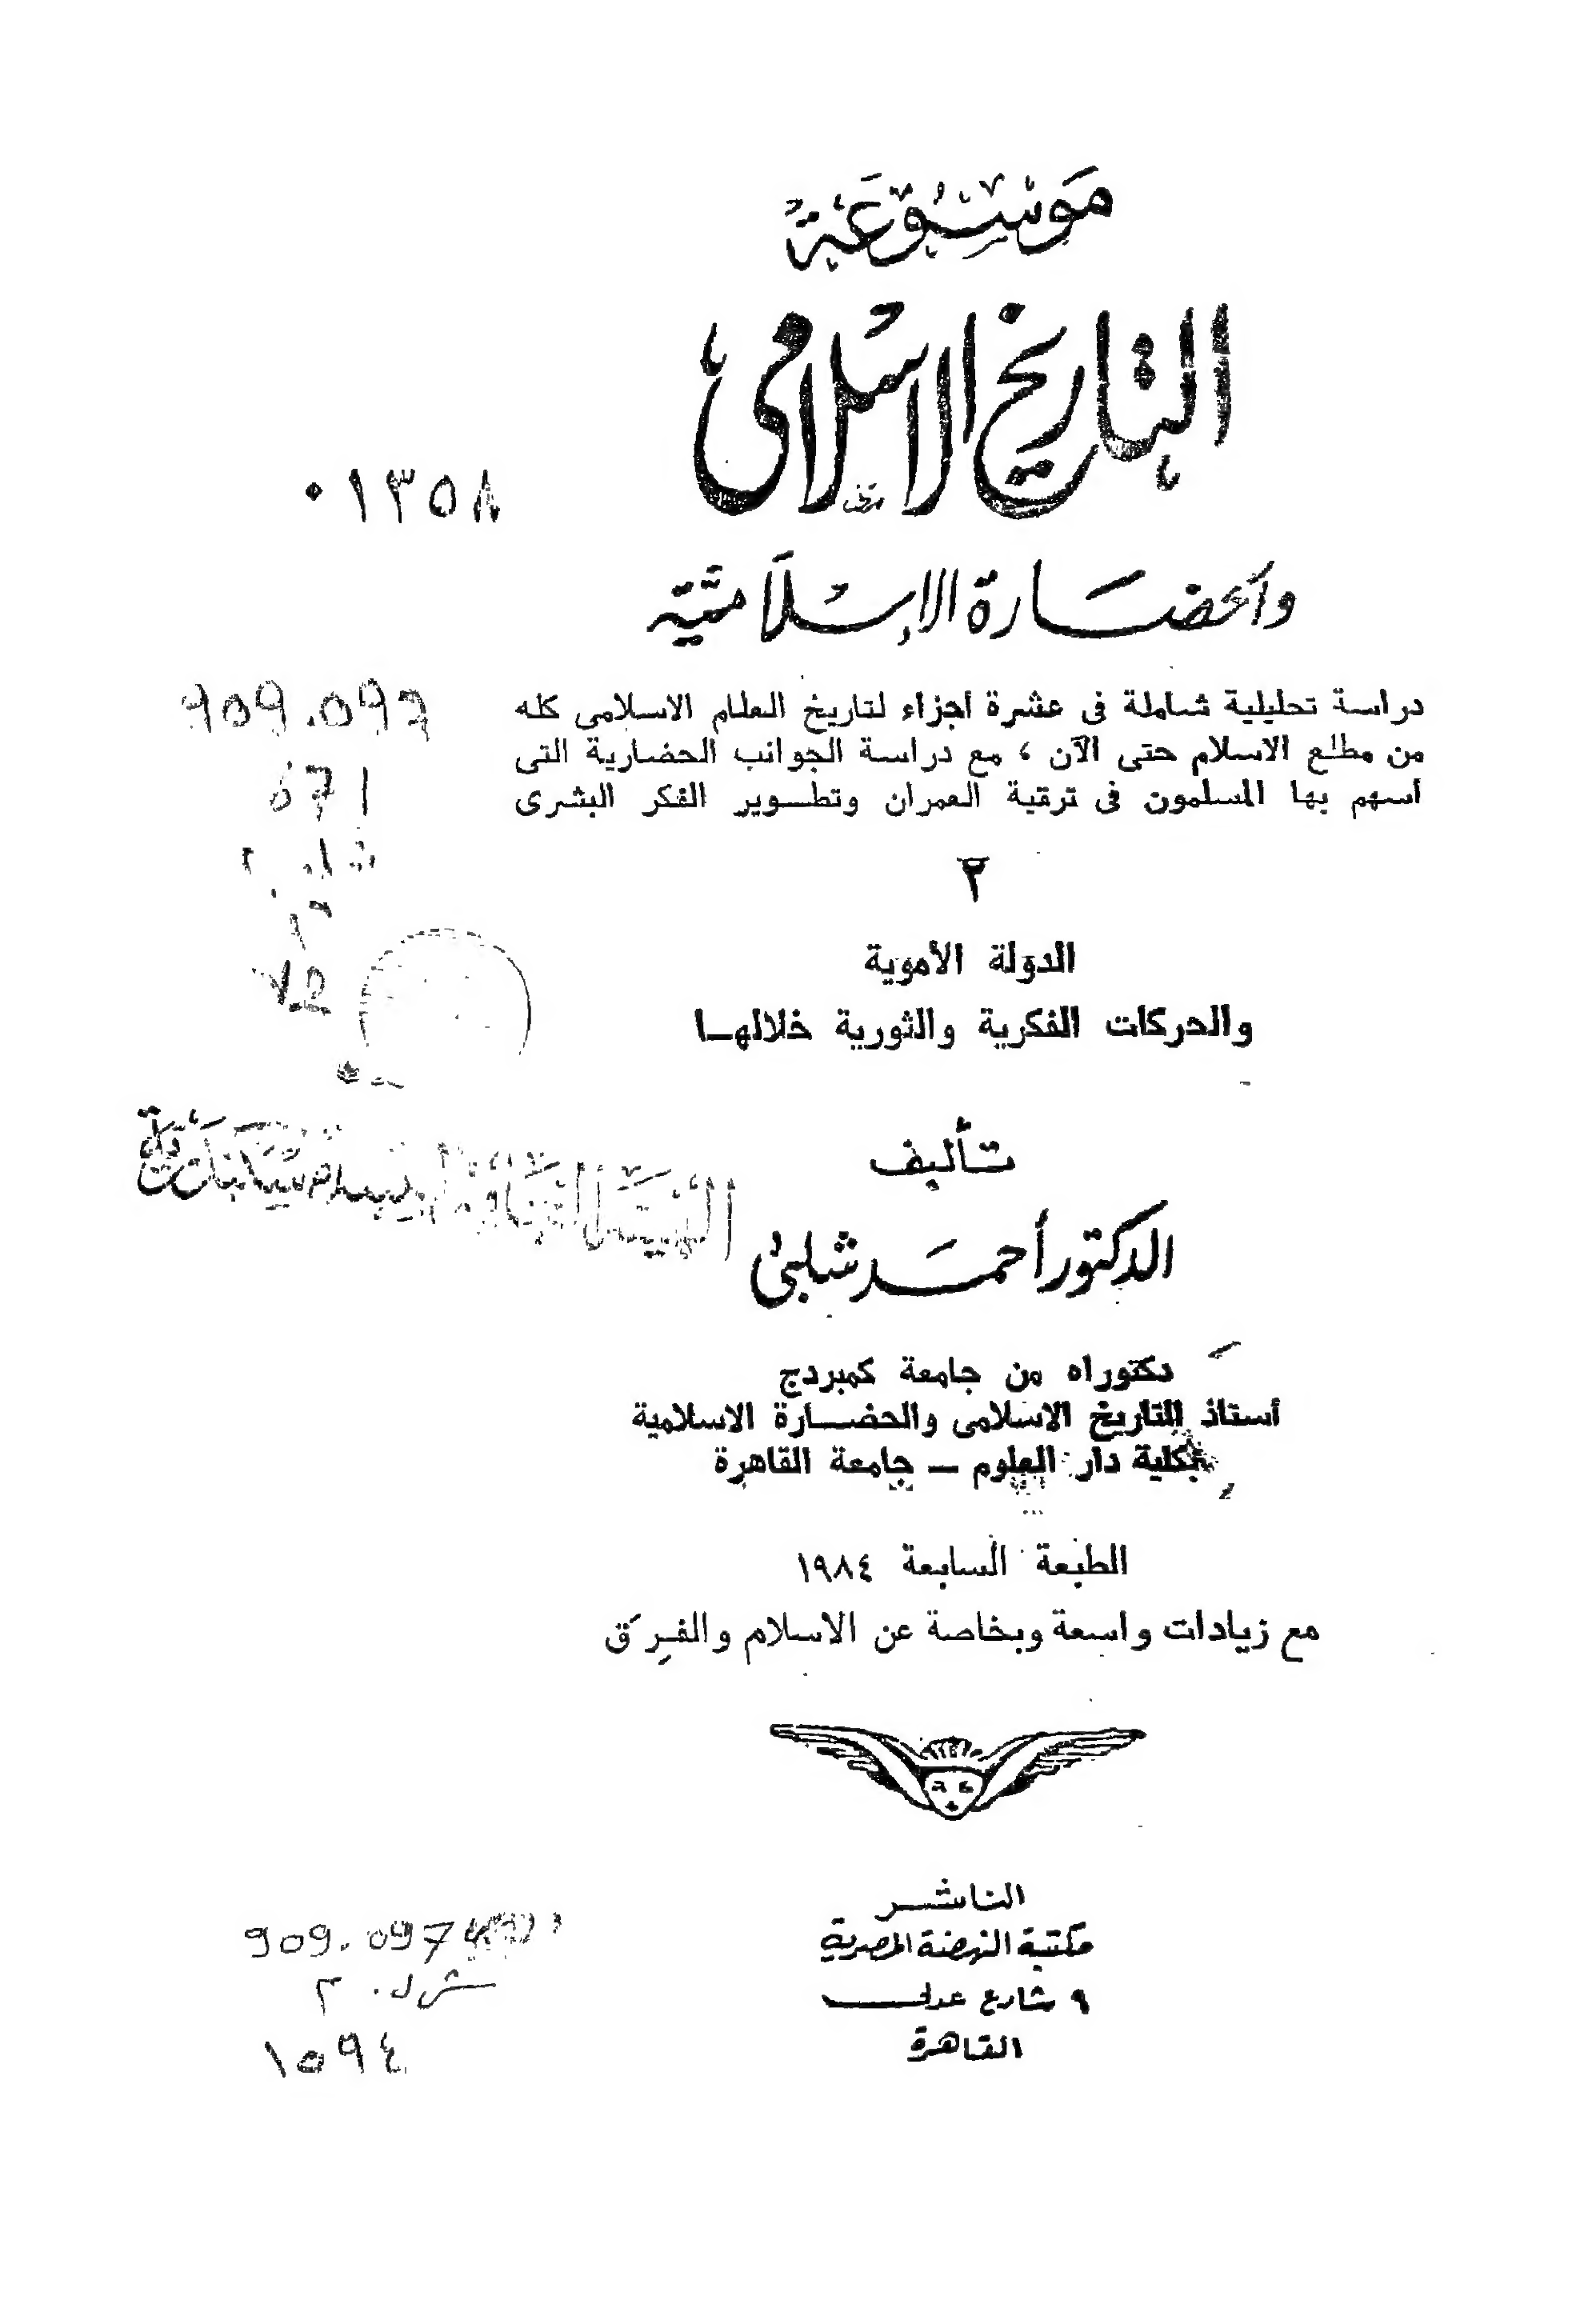 موسوعة
التاريخ الاسلامى
٠١٣٥٨
والحضارة الإسلامية
دراسة تحليلية شاملة فى عشرة أجزاء لتاريخ العالم الاسلامى كله
909.097
من مطلع الاسلام حتى الآن ، مع دراسة الجوانب الحضارية التى
671
أسهم بها المسلمون فى ترقية العمران وتطوير الفكر البشرى
٢
الدولة الأموية
والحركات الفكرية والثورية خلالها
تأليف
الدكتور أحمد شلبى
دكتوراه من جامعة كمبردج
أستاذ التاريخ الاسلامى والحضارة الاسلامية
بكلية دار العلوم — جامعة القاهرة
الطبعة السابعة ١٩٨٤
مع زيادات واسعة وبخاصة عن الاسلام والفِرَق
الناشر
909.097
مكتبة النهضة المصرية
٩ شارع عدلى
القاهرة
١٥٩٤